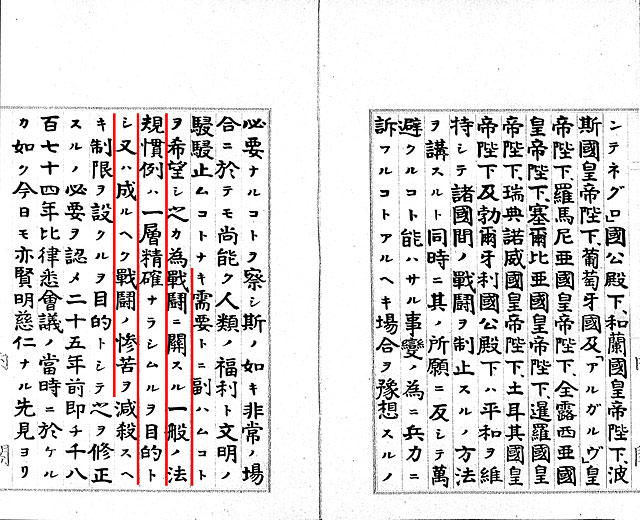 ンテネグロ國公殿下、和蘭國皇帝陛下、波
斯國皇帝陛下、葡萄牙國及「アルガルヴ」皇
帝陛下、羅馬尼亜國皇帝陛下、全露西亜國
皇帝陛下、塞爾比亜國皇帝陛下、暹羅國皇
帝陛下、瑞典諾威國皇帝陛下、土耳其國皇
帝陛下及勃爾牙利國公殿下ハ平和ヲ維
持シテ諸國間ノ戰鬪ヲ制止スルノ方法
ヲ講スルト同時ニ其ノ所願ニ反シテ萬
避クルコト能ハサル事變ノ為ニ兵力ニ
訴フルコトアルヘキ場合ヲ豫想スルノ
必要ナルコトヲ察シ斯ノ如キ非常ノ場
合ニ於テモ尚能ク人類ノ福利ト文明ノ
駸駸止ムコトナキ需要トニ副ハムコト
ヲ希望シ之カ為戰鬪ニ關スル一般ノ法
規慣例ハ一層精確ナラシムルヲ目的ト
シ又ハ成ルヘク戰鬪ノ惨苦ヲ減殺スヘ
キ制限ヲ設クルヲ目的トシテ之ヲ修正
スルノ必要ヲ認メ二十五年前即チ千八
百七十四年比律悉會議ノ當時ニ於ケル
カ如ク今日モ亦賢明慈仁ナル先見ヨリ